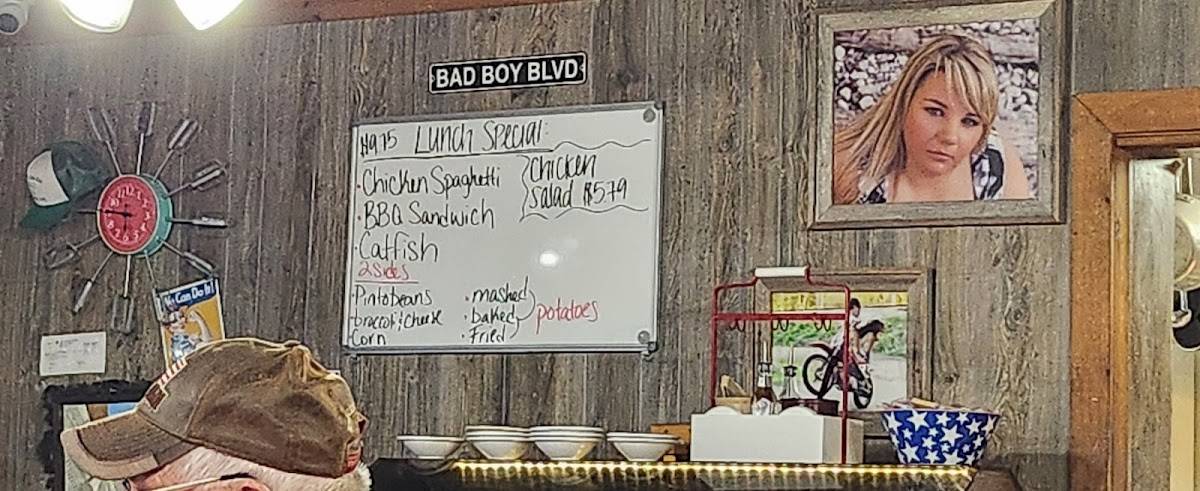 BAD BOY BLVD
$9.75 Lunch Special:
· Chicken Spaghetti
· BBQ Sandwich
· Catfish
2 Sides
· Pinto beans
broccoli & cheese
Corn
· mashed
· baked
· Fried
potatoes
Chicken
Salad $5.79
We Can Do It!